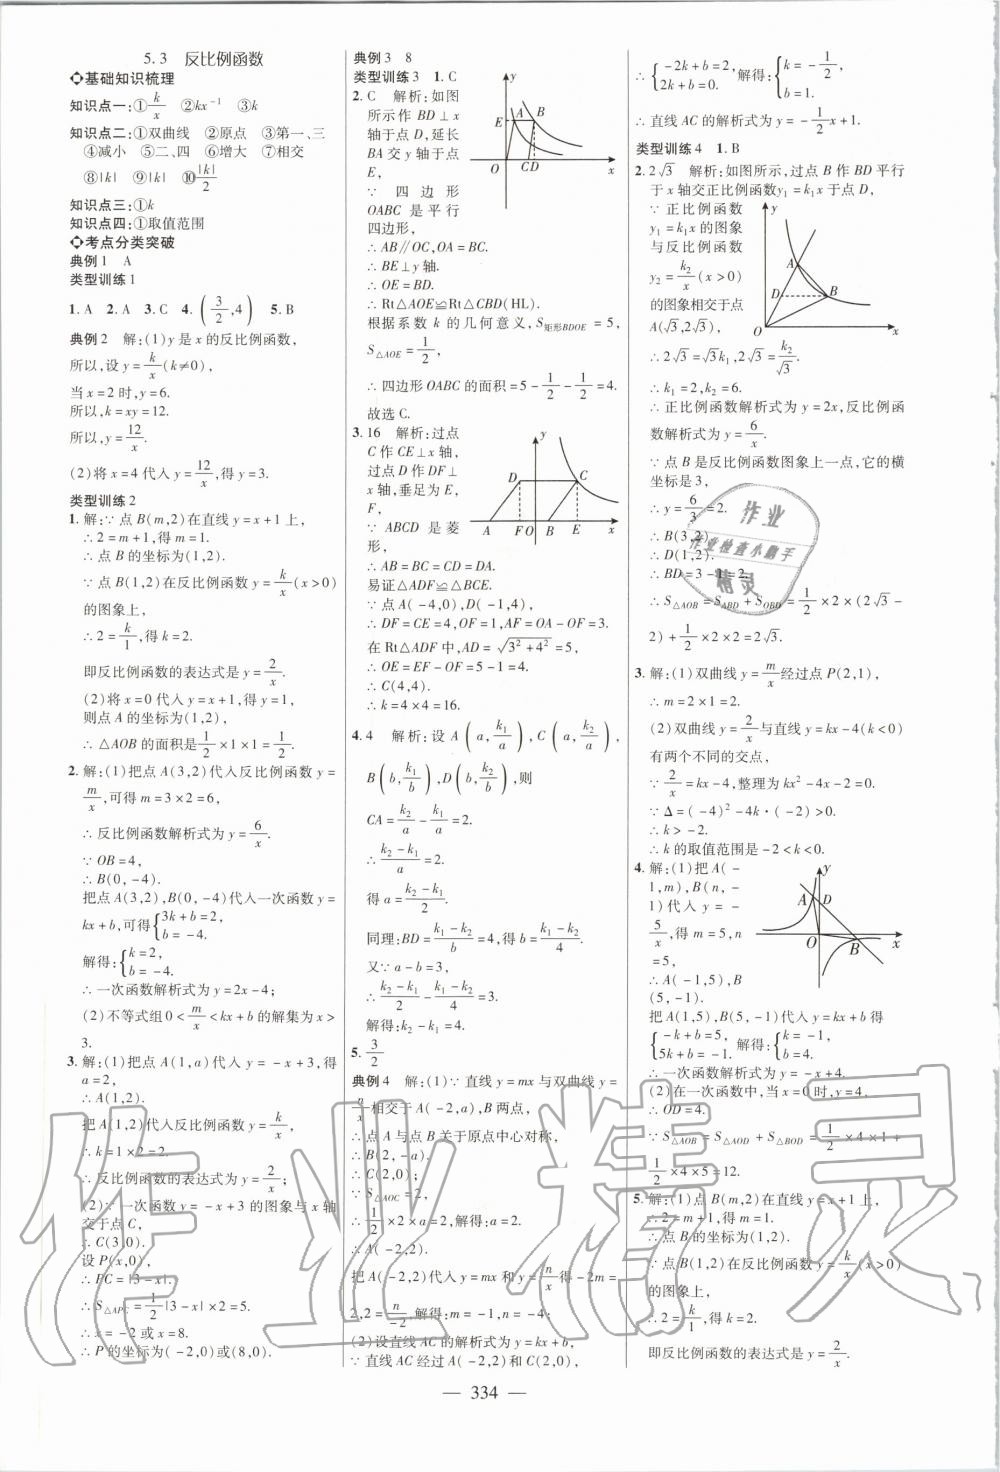 5.3 反比例函数
❖基础知识梳理
知识点一:①k/x ②kx⁻¹ ③k
知识点二:①双曲线 ②原点 ③第一、三
④减小 ⑤二、四 ⑥增大 ⑦相交
⑧|k| ⑨|k| ⑩|k|/2
知识点三:①k
知识点四:①取值范围
❖考点分类突破
典例1 A
类型训练1
1.A 2.A 3.C 4.(3/2,4) 5.B
典例2 解:(1)y是x的反比例函数,
所以,设y=k/x(k≠0),
当x=2时,y=6.
所以,k=xy=12.
所以,y=12/x.
(2)将x=4代入y=12/x,得y=3.
类型训练2
1.解:∵点B(m,2)在直线y=x+1上,
∴2=m+1,得m=1.
∴点B的坐标为(1,2).
∵点B(1,2)在反比例函数y=k/x(x>0)
的图象上,
∴2=k/1,得k=2.
即反比例函数的表达式是y=2/x.
(2)将x=0代入y=x+1,得y=1,
则点A的坐标为(1,2),
∴△AOB的面积是1/2×1×1=1/2.
2.解:(1)把点A(3,2)代入反比例函数y=
m/x,可得m=3×2=6,
∴反比例函数解析式为y=6/x.
∵OB=4,
∴B(0,-4).
把点A(3,2),B(0,-4)代入一次函数y=
kx+b,可得{3k+b=2, b=-4.
解得:{k=2, b=-4.
∴一次函数解析式为y=2x-4;
(2)不等式组0<m/x<kx+b的解集为x>
3.
3.解:(1)把点A(1,a)代入y=-x+3,得
a=2,
∴A(1,2).
把A(1,2)代入反比例函数y=k/x,
∴k=1×2=2.
∴反比例函数的表达式为y=2/x;
(2)∵一次函数y=-x+3的图象与x轴
交于点C,
∴C(3,0).
设P(x,0),
∴PC=|3-x|.
∴S△APC=1/2|3-x|×2=5.
∴x=-2或x=8.
∴P的坐标为(-2,0)或(8,0).
典例3 8
类型训练3 1.C
2.C 解析:如图
所示作BD⊥x
轴于点D,延长
BA交y轴于点
E,
∵四边形
OABC是平行
四边形,
∴AB∥OC,OA=BC.
∴BE⊥y轴.
∴OE=BD.
∴Rt△AOE≌Rt△CBD(HL).
根据系数k的几何意义,S矩形BDOE=5,
S△AOE=1/2,
∴四边形OABC的面积=5-1/2-1/2=4.
故选C.
y
E A B
O C D x
3.16 解析:过点
C作CE⊥x轴,
过点D作DF⊥
x轴,垂足为E,
F,
∵ABCD是菱
形,
∴AD=BC=CD=DA.
易证△ADF≌△BCE.
∵点A(-4,0),D(-1,4),
∴DF=CE=4,OF=1,AF=OA-OF=3.
在Rt△ADF中,AD=√3²+4²=5,
∴OE=EF-OF=5-1=4.
∴C(4,4).
∴k=4×4=16.
y
D C
A F O B E x
4.4 解析:设A(a,k₁/a),C(a,k₂/a),
B(b,k₁/b),D(b,k₂/b),则
CA=k₂/a-k₁/a=2.
∴(k₂-k₁)/a=2.
得a=(k₂-k₁)/2.
同理:BD=(k₁-k₂)/b=4,得b=(k₁-k₂)/4.
又∵a-b=3,
∴(k₂-k₁)/2-(k₁-k₂)/4=3.
解得:k₂-k₁=4.
5.3/2
典例4 解:(1)∵直线y=mx与双曲线y=
n/x相交于A(-2,a),B两点,
∴点A与点B关于原点中心对称,
∴B(2,-a).
∴C(2,0);
∵S△AOC=2,
∴1/2×2×a=2,解得:a=2.
∴A(-2,2).
把A(-2,2)代入y=mx和y=n/x得-2m=
2,2=n/-2,解得:m=-1,n=-4;
(2)设直线AC的解析式为y=kx+b,
∵直线AC经过A(-2,2)和C(2,0),
∴{-2k+b=2, 2k+b=0. 解得:{k=-1/2, b=1.
∴直线AC的解析式为y=-1/2x+1.
类型训练4 1.B
2.2√3 解析:如图所示,过点B作BD平行
于x轴交正比例函数y₁=k₁x于点D,
∵正比例函数
y₁=k₁x的图象
与反比例函数
y₂=k₂/x(x>0)
的图象相交于点
A(√3,2√3),
∴2√3=√3k₁,2√3=k₂/√3.
∴k₁=2,k₂=6.
∴正比例函数解析式为y=2x,反比例函
数解析式为y=6/x.
∵点B是反比例函数图象上一点,它的横
坐标是3,
∴y=6/3=2.
∴B(3,2).
∴D(1,2).
∴BD=3-1=2.
∴S△AOB=S△ABD+S△OBD=1/2×2×(2√3-
2)+1/2×2×2=2√3.
y
A
D B
O x
3.解:(1)双曲线y=m/x经过点P(2,1),
∴m=2×1=2.
(2)双曲线y=2/x与直线y=kx-4(k<0)
有两个不同的交点,
∵2/x=kx-4,整理为kx²-4x-2=0.
∵Δ=(-4)²-4k·(-2)>0.
∴k>-2.
∴k的取值范围是-2<k<0.
4.解:(1)把A(-
1,m),B(n,-
1)代入y=-
5/x,得m=5,n
=5,
∴A(-1,5),B
(5,-1).
把A(1,5),B(5,-1)代入y=kx+b得
{-k+b=5, 5k+b=-1. 解得:{k=-1, b=4.
∴一次函数解析式为y=-x+4.
(2)在一次函数中,当x=0时,y=4.
∴OD=4.
∵S△AOB=S△AOD+S△BOD=1/2×4×1+
1/2×4×5=12.
y
A D
O B x
5.解:(1)点B(m,2)在直线y=x+1上,
∴2=m+1,得m=1.
∴点B的坐标为(1,2).
∵点B(1,2)在反比例函数y=k/x(x>0)
的图象上,
∴2=k/1,得k=2.
即反比例函数的表达式是y=2/x.
— 334 —
作业
作业检查小鹅手
精灵
作业精灵